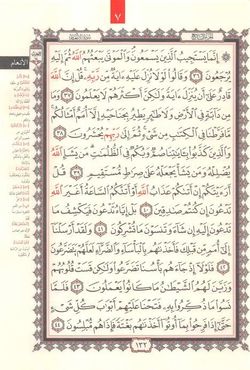 ٧
الأنعام
۞ إِنَّمَا يَسْتَجِيبُ الَّذِينَ يَسْمَعُونَ وَالْمَوْتَى يَبْعَثُهُمُ اللَّهُ ثُمَّ إِلَيْهِ
يُرْجَعُونَ ٣٦ وَقَالُوا لَوْلَا نُزِّلَ عَلَيْهِ ءَايَةٌ مِّن رَّبِّهِ قُلْ إِنَّ اللَّهَ
قَادِرٌ عَلَى أَن يُنَزِّلَ ءَايَةً وَلَكِنَّ أَكْثَرَهُمْ لَا يَعْلَمُونَ ٣٧ وَمَا
مِن دَابَّةٍ فِي الْأَرْضِ وَلَا طَائِرٍ يَطِيرُ بِجَنَاحَيْهِ إِلَّا أُمَمٌ أَمْثَالُكُم
مَّا فَرَّطْنَا فِي الْكِتَابِ مِن شَيْءٍ ثُمَّ إِلَى رَبِّهِمْ يُحْشَرُونَ ٣٨
وَالَّذِينَ كَذَّبُوا بِآيَاتِنَا صُمٌّ وَبُكْمٌ فِي الظُّلُمَاتِ مَن يَشَإِ اللَّهُ
يُضْلِلْهُ وَمَن يَشَأْ يَجْعَلْهُ عَلَى صِرَاطٍ مُّسْتَقِيمٍ ٣٩ قُلْ
أَرَءَيْتَكُمْ إِنْ أَتَاكُمْ عَذَابُ اللَّهِ أَوْ أَتَتْكُمُ السَّاعَةُ أَغَيْرَ اللَّهِ
تَدْعُونَ إِن كُنتُمْ صَادِقِينَ ٤٠ بَلْ إِيَّاهُ تَدْعُونَ فَيَكْشِفُ مَا
تَدْعُونَ إِلَيْهِ إِن شَاءَ وَتَنسَوْنَ مَا تُشْرِكُونَ ٤١ وَلَقَدْ أَرْسَلْنَا
إِلَى أُمَمٍ مِّن قَبْلِكَ فَأَخَذْنَاهُم بِالْبَأْسَاءِ وَالضَّرَّاءِ لَعَلَّهُمْ يَتَضَرَّعُونَ
٤٢ فَلَوْلَا إِذْ جَاءَهُم بَأْسُنَا تَضَرَّعُوا وَلَكِن قَسَتْ قُلُوبُهُمْ
وَزَيَّنَ لَهُمُ الشَّيْطَانُ مَا كَانُوا يَعْمَلُونَ ٤٣ فَلَمَّا
نَسُوا مَا ذُكِّرُوا بِهِ فَتَحْنَا عَلَيْهِمْ أَبْوَابَ كُلِّ شَيْءٍ
حَتَّى إِذَا فَرِحُوا بِمَا أُوتُوا أَخَذْنَاهُم بَغْتَةً فَإِذَا هُم مُّبْلِسُونَ ٤٤
١٣٢